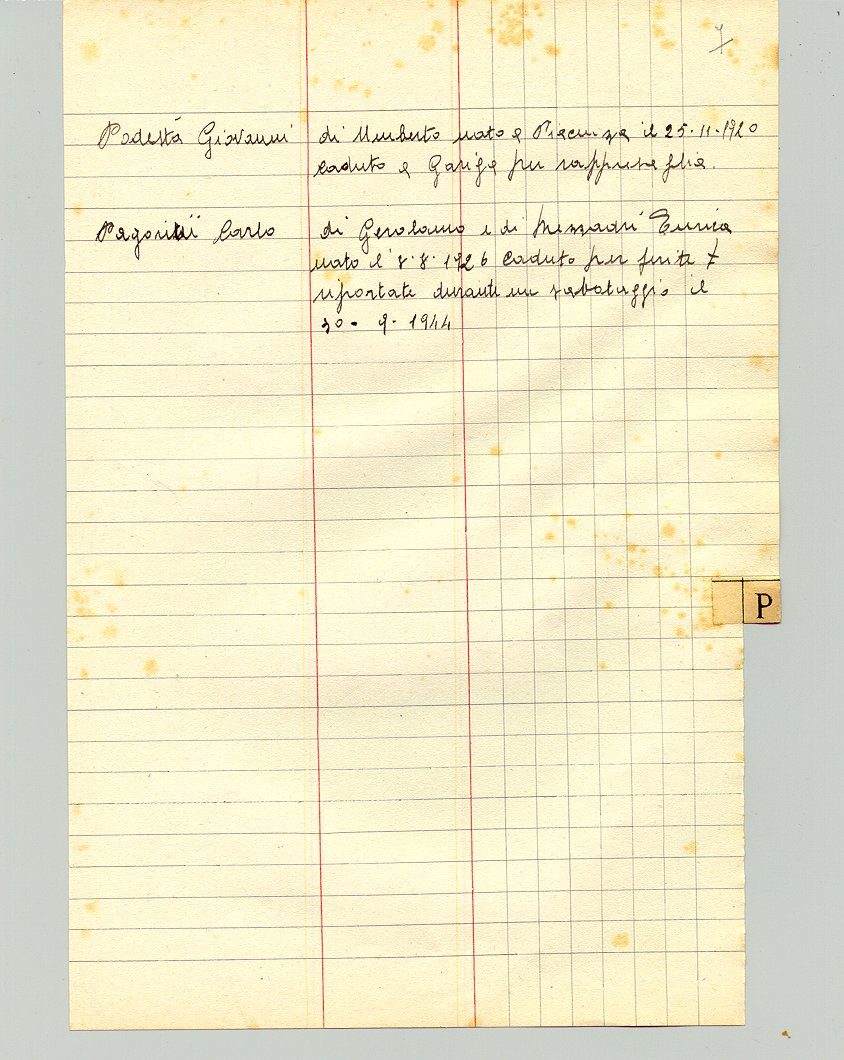 7
Podestà Giovanni di Umberto nato a Piacenza il 25.11.1920
caduto a Gariga per rappresaglia.
Carlo di Gerolamo e di Mezzadri Enrica
nato l' 8.8.1926 Caduto per ferite
riportate durante un sabotaggio il
30-9-1944
P